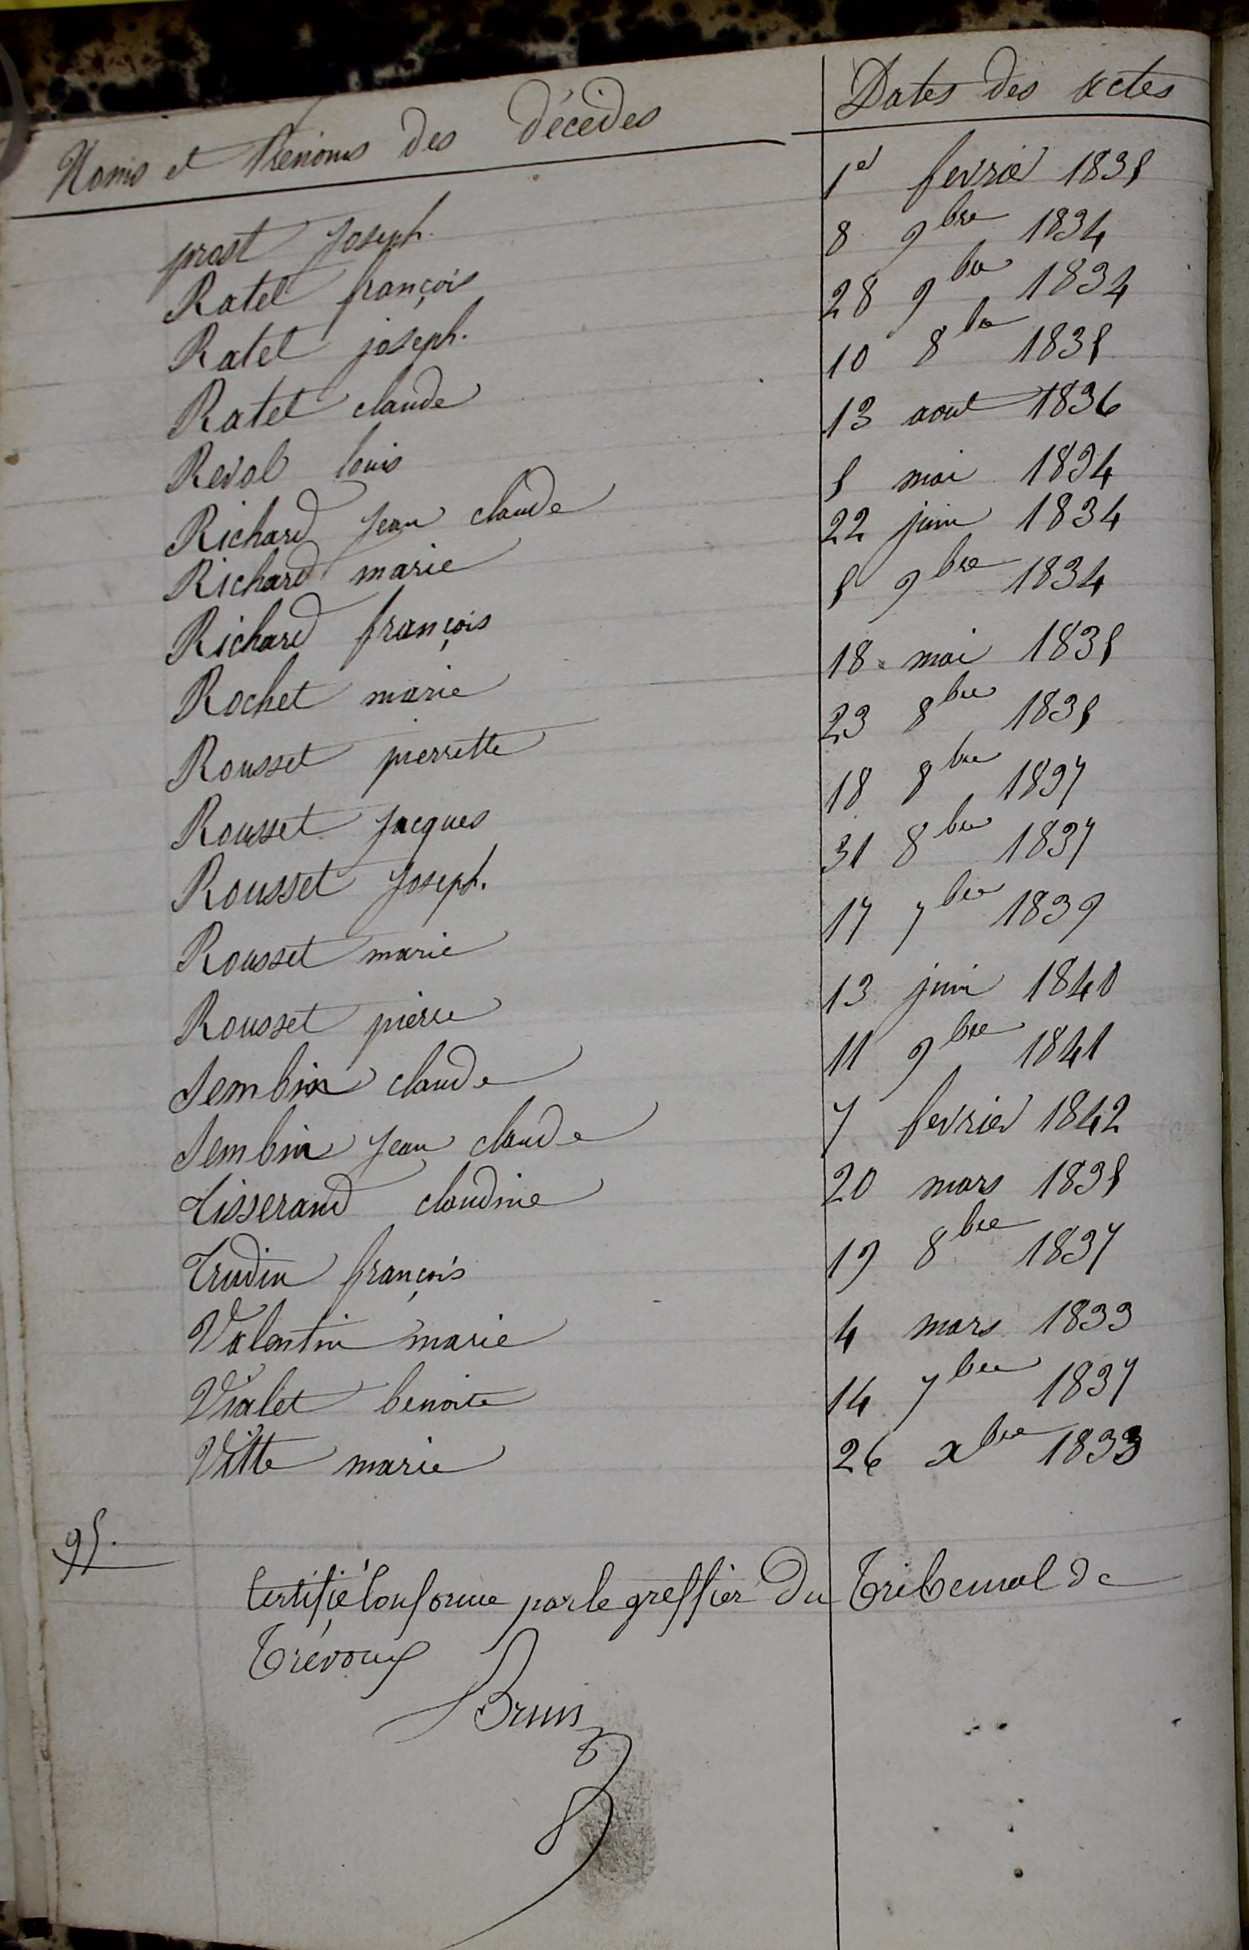 Noms et Prénoms des décédés | Dates des actes
prost Joseph. | 1er fevrier 1835
Ratel françois | 8 9bre 1834
Ratel joseph. | 28 9bre 1834
Ratel claude | 10 8bre 1835
Reval louis | 13 aout 1836
Richard Jean claude | 5 mai 1834
Richard marie | 22 juin 1834
Richard françois | 5 9bre 1834
Rochet marie | 18 mai 1835
Rousset pierrette | 23 8bre 1835
Rousset Jacques | 18 8bre 1837
Rousset Joseph. | 31 8bre 1837
Rousset marie | 17 7bre 1839
Rousset pierre | 13 juin 1840
Sembin claude | 11 9bre 1841
Sembin Jean claude | 7 fevrier 1842
Tisserand claudine | 20 mars 1835
Trudin françois | 19 8bre 1837
Valentin marie | 4 mars 1833
Vialet benoite | 14 7bre 1837
Vitte marie | 26 xbre 1833
95.
Certifié Conforme par le greffier Du Tribunal de
Trévoux
Brun